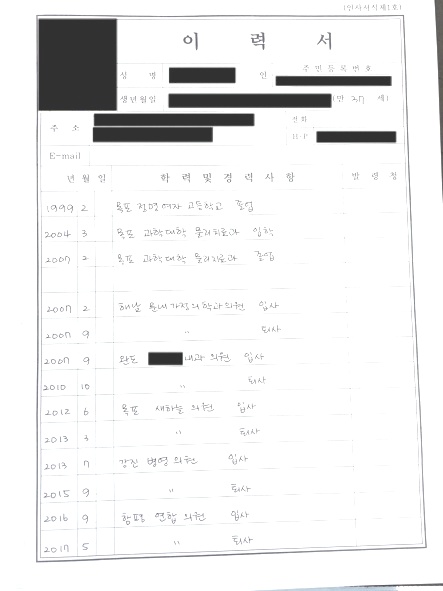 (인사서식제1호)
이 력 서
성 명 인 주민등록번호
생년월일 (만 37 세)
주 소 전화
H·P
E-mail
년 월 일 학 력 및 경 력 사 항 발 령 청
1999 2 목포 정명여자 고등학교 졸업
2004 3 목포 과학대학 물리치료과 입학
2007 2 목포 과학대학 물리치료과 졸업
2007 2 해남 가정의학과의원 입사
2007 9 " 퇴사
2007 9 완도 내과 의원 입사
2010 10 " 퇴사
2012 6 목포 새하늘 의원 입사
2013 3 " 퇴사
2013 7 강진 병영 의원 입사
2015 9 " 퇴사
2016 9 함평 연합 의원 입사
2017 5 " 퇴사